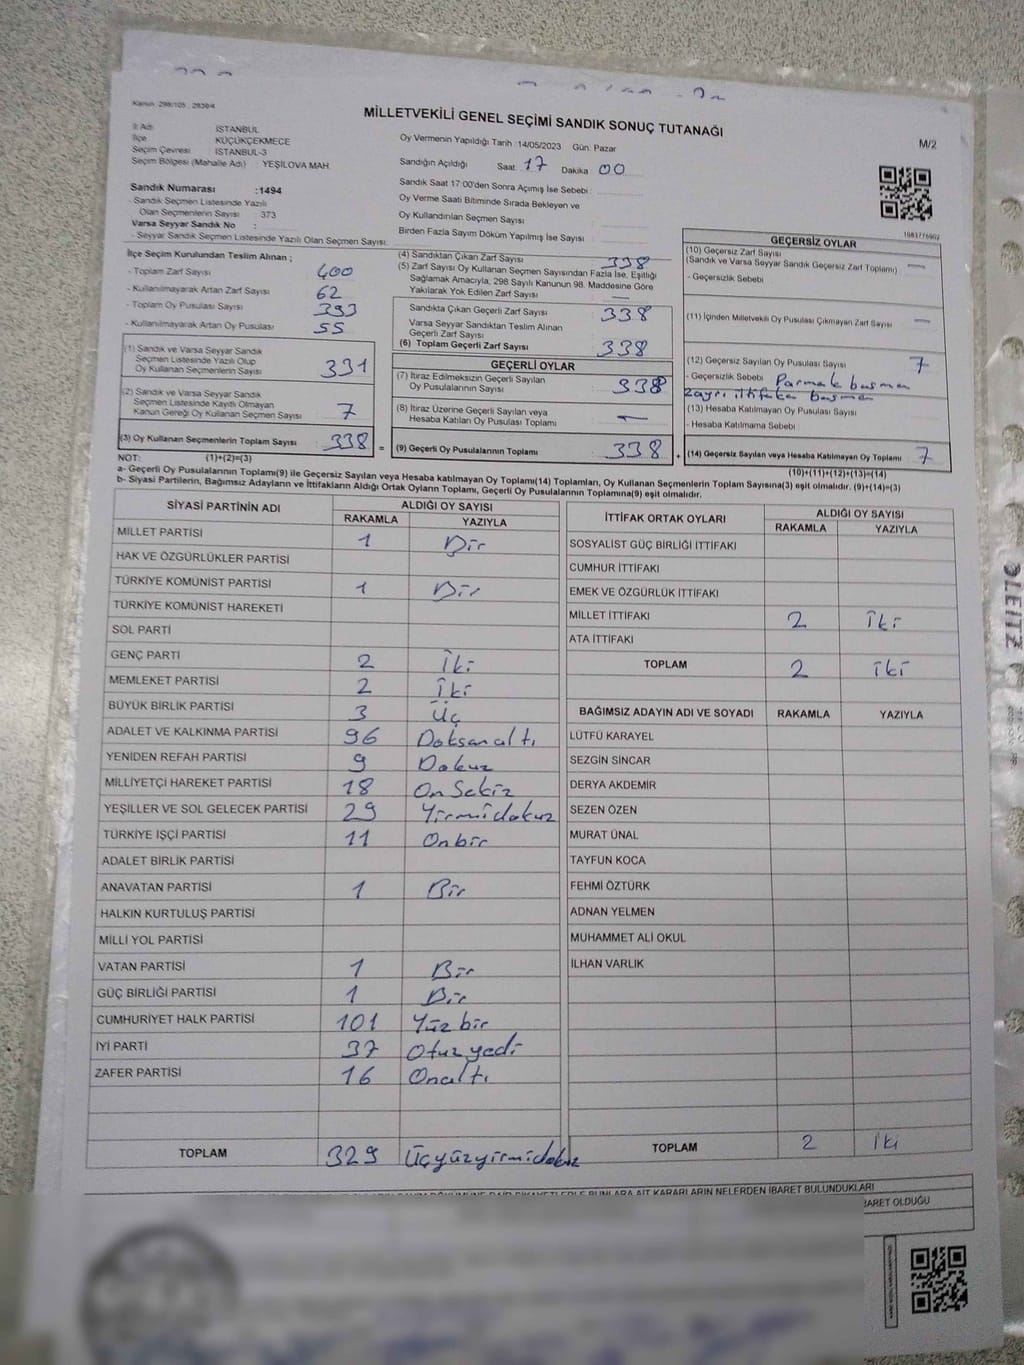 Kanun: 298/105 , 2839/4
MİLLETVEKİLİ GENEL SEÇİMİ SANDIK SONUÇ TUTANAĞI
M/2
İl Adı İSTANBUL
İlçe KÜÇÜKÇEKMECE
Seçim Çevresi İSTANBUL-3
Seçim Bölgesi (Mahalle Adı) YEŞİLOVA MAH.
Sandık Numarası :1494
- Sandık Seçmen Listesinde Yazılı
Olan Seçmenlerin Sayısı : 373
Varsa Seyyar Sandık No :
- Seyyar Sandık Seçmen Listesinde Yazılı Olan Seçmen Sayısı:
Oy Vermenin Yapıldığı Tarih :14/05/2023 Gün: Pazar
Sandığın Açıldığı Saat: 17 Dakika 00
Sandık Saat 17:00'den Sonra Açımış İse Sebebi :
Oy Verme Saati Bitiminde Sırada Bekleyen ve
Oy Kullandırılan Seçmen Sayısı :
Birden Fazla Sayım Döküm Yapılmış İse Sayısı :
İlçe Seçim Kurulundan Teslim Alınan ;
- Toplam Zarf Sayısı : 400
- Kullanılmayarak Artan Zarf Sayısı : 62
- Toplam Oy Pusulası Sayısı : 393
- Kullanılmayarak Artan Oy Pusulası : 55
(1) Sandık ve Varsa Seyyar Sandık
Seçmen Listesinde Yazılı Olup
Oy Kullanan Seçmenlerin Sayısı : 331
(2) Sandık ve Varsa Seyyar Sandık
Seçmen Listesinde Kayıtlı Olmayan
Kanun Gereği Oy Kullanan Seçmen Sayısı : 7
(3) Oy Kullanan Seçmenlerin Toplam Sayısı : 338 =
(4) Sandıktan Çıkan Zarf Sayısı : 338
(5) Zarf Sayısı Oy Kullanan Seçmen Sayısından Fazla İse, Eşitliği
Sağlamak Amacıyla, 298 Sayılı Kanunun 98. Maddesine Göre
Yakılarak Yok Edilen Zarf Sayısı : —
Sandıkta Çıkan Geçerli Zarf Sayısı : 338
Varsa Seyyar Sandıktan Teslim Alınan
Geçerli Zarf Sayısı :
(6) Toplam Geçerli Zarf Sayısı : 338
GEÇERLİ OYLAR
(7) İtiraz Edilmeksizin Geçerli Sayılan
Oy Pusulalarının Sayısı : 338
(8) İtiraz Üzerine Geçerli Sayılan veya
Hesaba Katılan Oy Pusulası Toplamı : —
(9) Geçerli Oy Pusulalarının Toplamı : 338 +
1983776902
GEÇERSİZ OYLAR
(10) Geçersiz Zarf Sayısı
(Sandık ve Varsa Seyyar Sandık Geçersiz Zarf Toplamı) : —
- Geçersizlik Sebebi :
(11) İçinden Milletvekili Oy Pusulası Çıkmayan Zarf Sayısı : —
(12) Geçersiz Sayılan Oy Pusulası Sayısı : 7
- Geçersizlik Sebebi : Parmak basma
zayrı ittifaka basma
(13) Hesaba Katılmayan Oy Pusulası Sayısı :
- Hesaba Katılmama Sebebi :
(14) Geçersiz Sayılan veya Hesaba Katılmayan Oy Toplamı : 7
NOT: (1)+(2)=(3) (10)+(11)+(12)+(13)=(14)
a- Geçerli Oy Pusulalarının Toplamı(9) ile Geçersiz Sayılan veya Hesaba katılmayan Oy Toplamı(14) Toplamları, Oy Kullanan Seçmenlerin Toplam Sayısına(3) eşit olmalıdır. (9)+(14)=(3)
b- Siyasi Partilerin, Bağımsız Adayların ve İttifakların Aldığı Ortak Oyların Toplamı, Geçerli Oy Pusulalarının Toplamına(9) eşit olmalıdır.
SİYASİ PARTİNİN ADI ALDIĞI OY SAYISI
RAKAMLA YAZIYLA
MİLLET PARTİSİ 1 Bir
HAK VE ÖZGÜRLÜKLER PARTİSİ
TÜRKİYE KOMÜNİST PARTİSİ 1 Bir
TÜRKİYE KOMÜNİST HAREKETİ
SOL PARTİ
GENÇ PARTİ 2 İki
MEMLEKET PARTİSİ 2 İki
BÜYÜK BİRLİK PARTİSİ 3 Üç
ADALET VE KALKINMA PARTİSİ 96 Doksanaltı
YENİDEN REFAH PARTİSİ 9 Dokuz
MİLLİYETÇİ HAREKET PARTİSİ 18 On Sekiz
YEŞİLLER VE SOL GELECEK PARTİSİ 29 Yirmidokuz
TÜRKİYE İŞÇİ PARTİSİ 11 Onbir
ADALET BİRLİK PARTİSİ
ANAVATAN PARTİSİ 1 Bir
HALKIN KURTULUŞ PARTİSİ
MİLLİ YOL PARTİSİ
VATAN PARTİSİ 1 Bir
GÜÇ BİRLİĞİ PARTİSİ 1 Bir
CUMHURİYET HALK PARTİSİ 101 Yüzbir
İYİ PARTİ 37 Otuzyedi
ZAFER PARTİSİ 16 Onaltı
TOPLAM 329 Üçyüzyirmidokuz
İTTİFAK ORTAK OYLARI ALDIĞI OY SAYISI
RAKAMLA YAZIYLA
SOSYALİST GÜÇ BİRLİĞİ İTTİFAKI
CUMHUR İTTİFAKI
EMEK VE ÖZGÜRLÜK İTTİFAKI
MİLLET İTTİFAKI 2 İki
ATA İTTİFAKI
TOPLAM 2 iki
BAĞIMSIZ ADAYIN ADI VE SOYADI RAKAMLA YAZIYLA
LÜTFÜ KARAYEL
SEZGİN SİNCAR
DERYA AKDEMİR
SEZEN ÖZEN
MURAT ÜNAL
TAYFUN KOCA
FEHMİ ÖZTÜRK
ADNAN YELMEN
MUHAMMET ALİ OKUL
İLHAN VARLIK
TOPLAM 2 iki
BUNLARA AİT KARARLARIN NELERDEN İBARET BULUNDUKLARI
BARET OLDUĞU
LEITZ